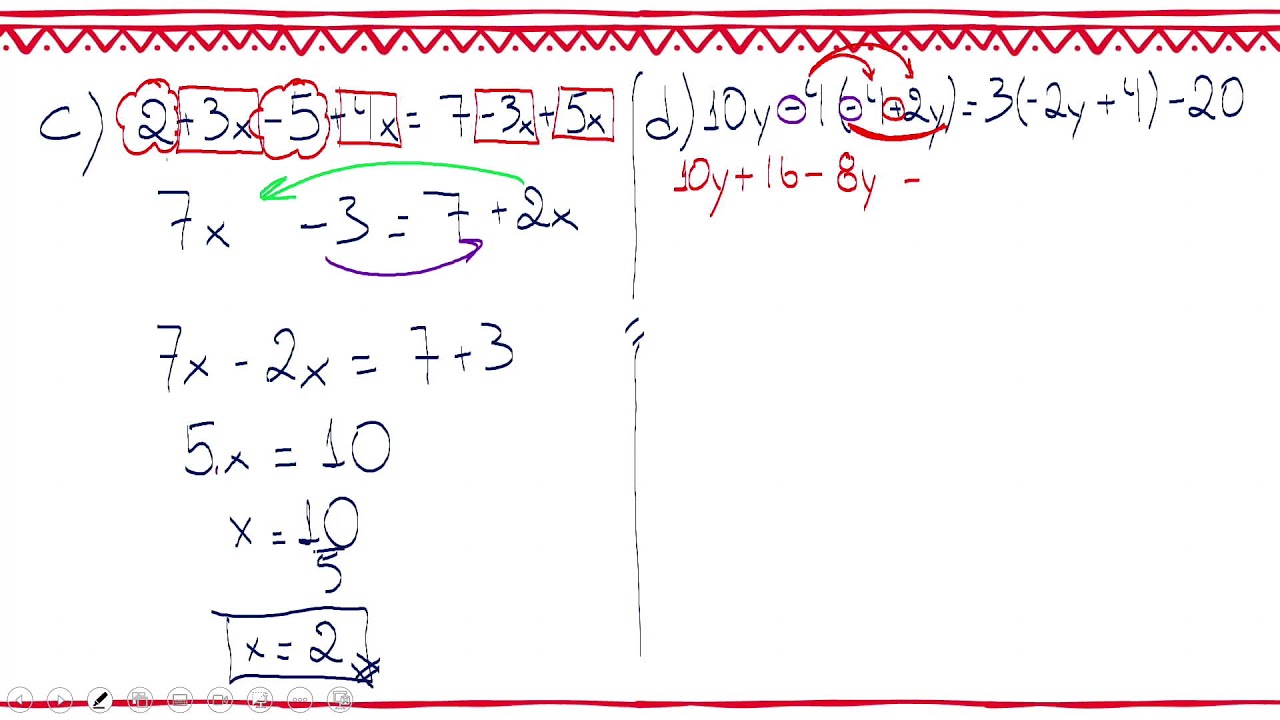 c) 2+3x-5+4x=7-3x+5x
7x -3=7+2x
7x-2x=7+3
5.x=10
x=10
5
x=2
d) 10y-4(-4+2y)=3(-2y+4)-20
10y+16-8y =